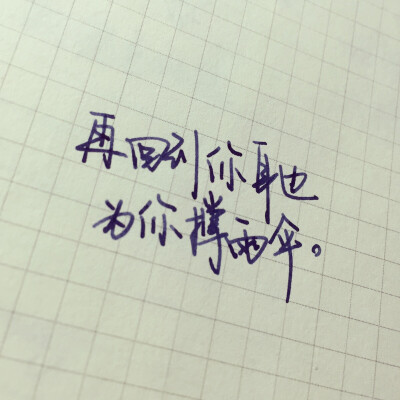 再回到你身边
为你撑雨伞。